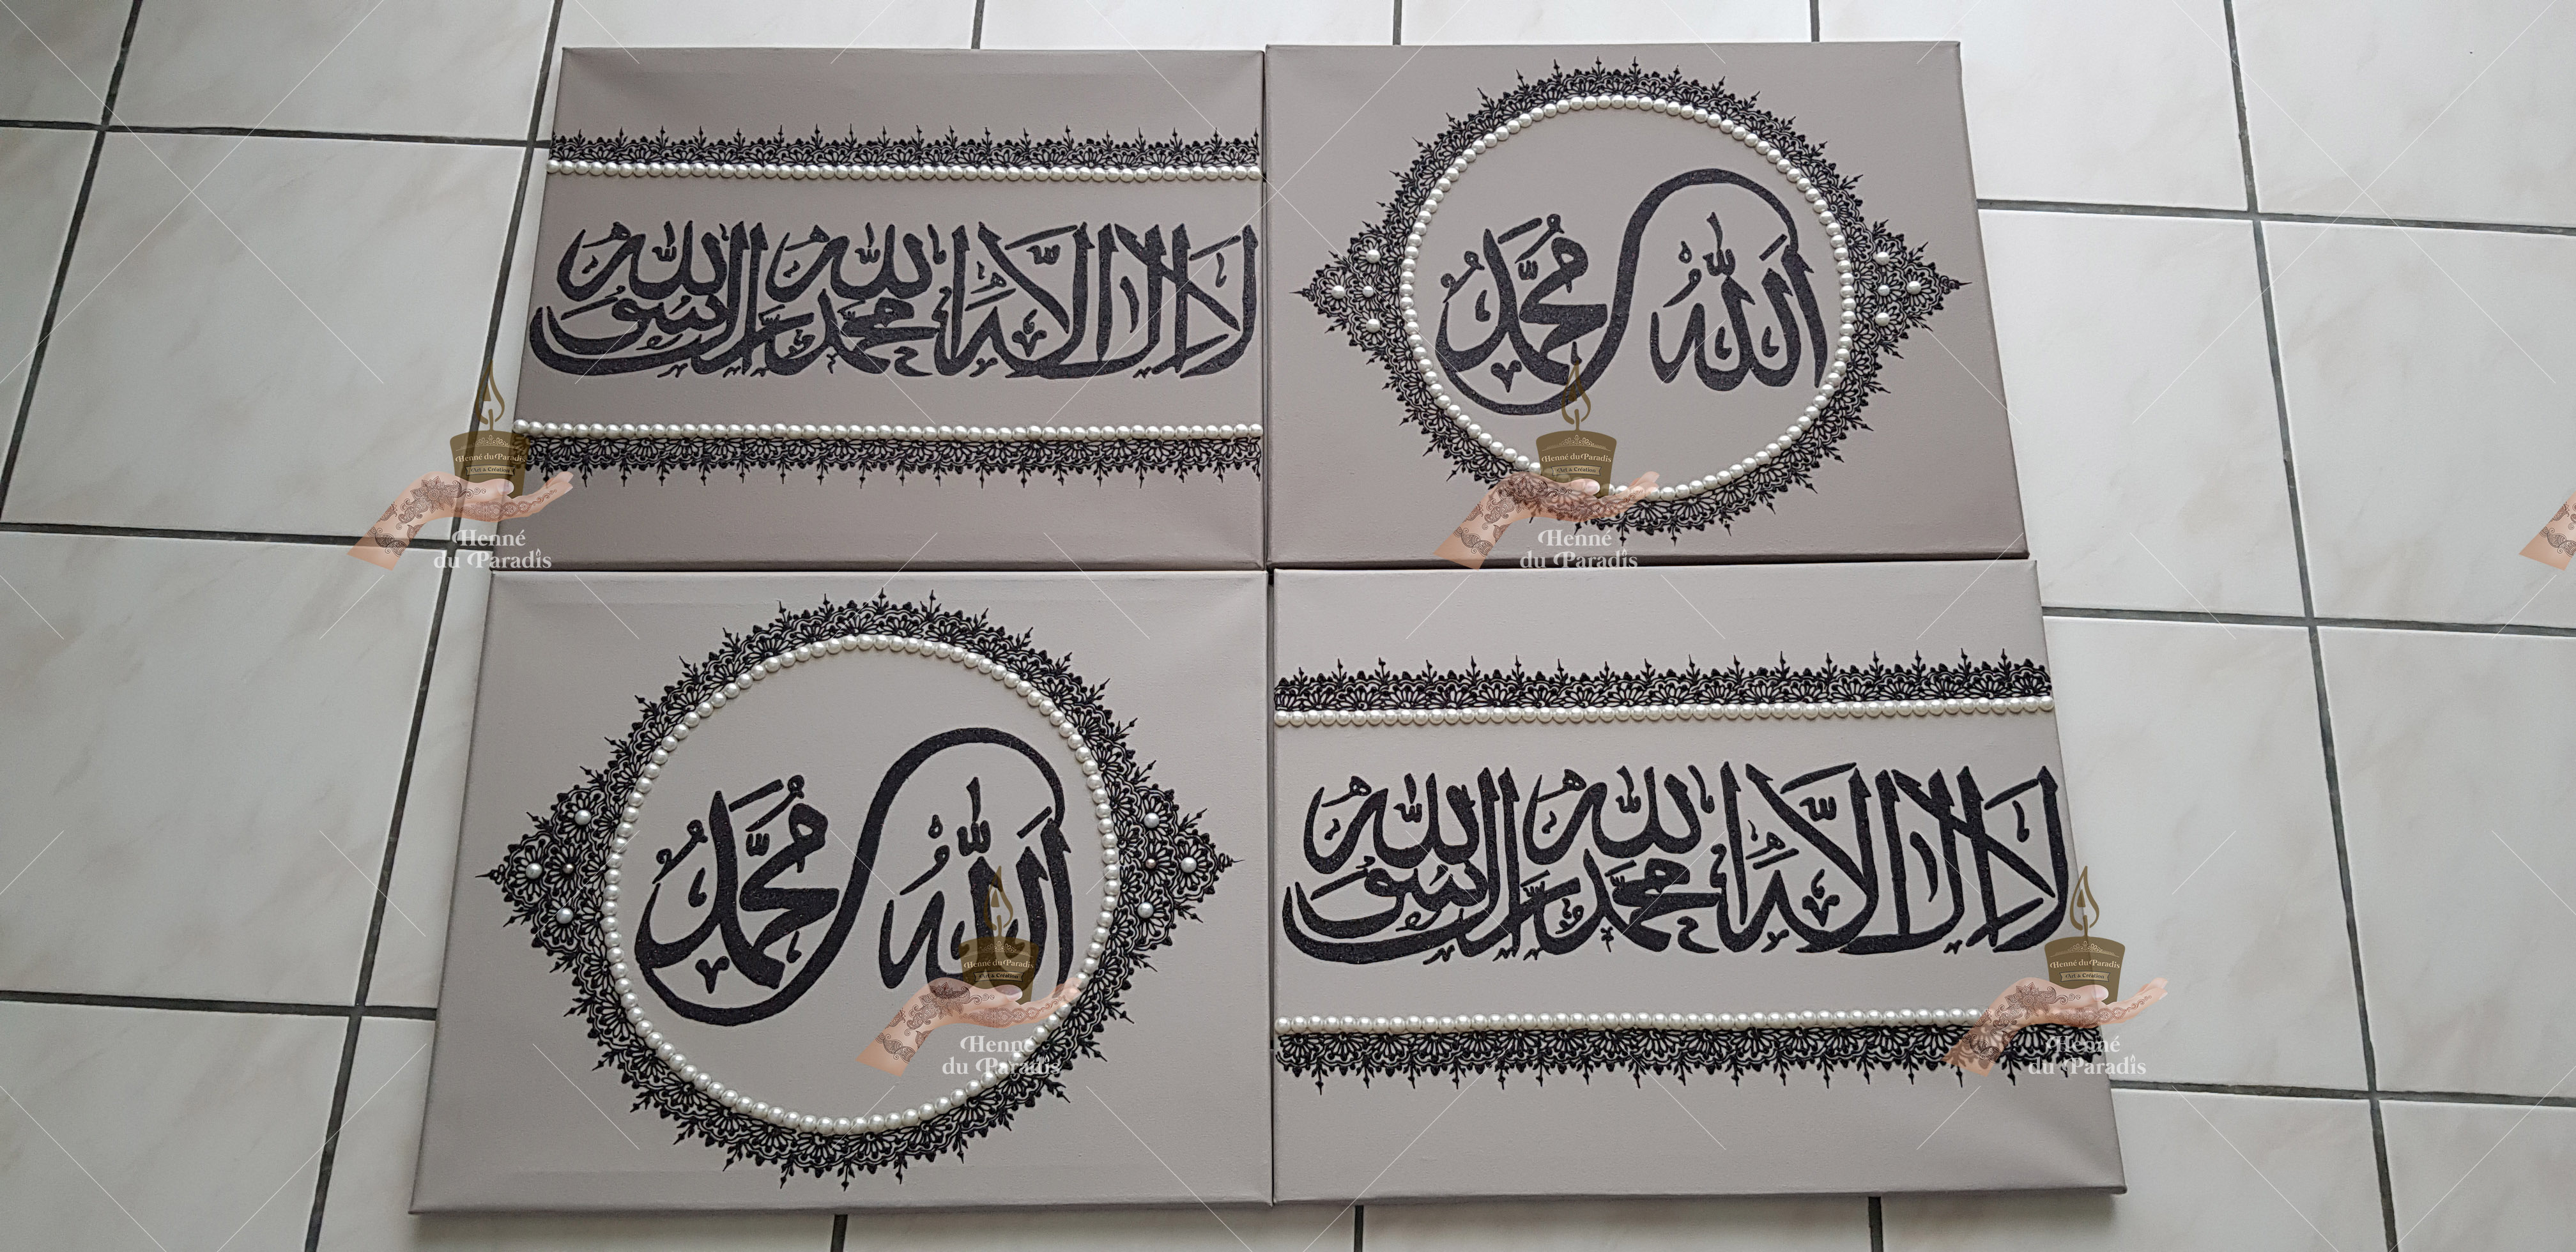 لا إله إلا الله محمد رسول الله
الله محمد
Henné du Paradis
Art & Création
Henné
du Paradis
Henné du Paradis
Art & Création
Henné
du Paradis
الله محمد
لا إله إلا الله محمد رسول الله
Henné du Paradis
Art & Création
Henné
du Paradis
Henné du Paradis
Art & Création
Henné
du Paradis